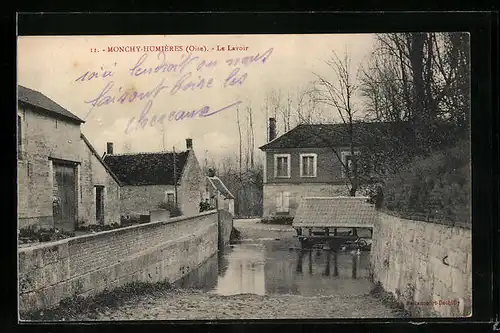 11. - MONCHY-HUMIÈRES (Oise). - Le Lavoir
voici lendroit ou nous
faisont boire les
chevaux